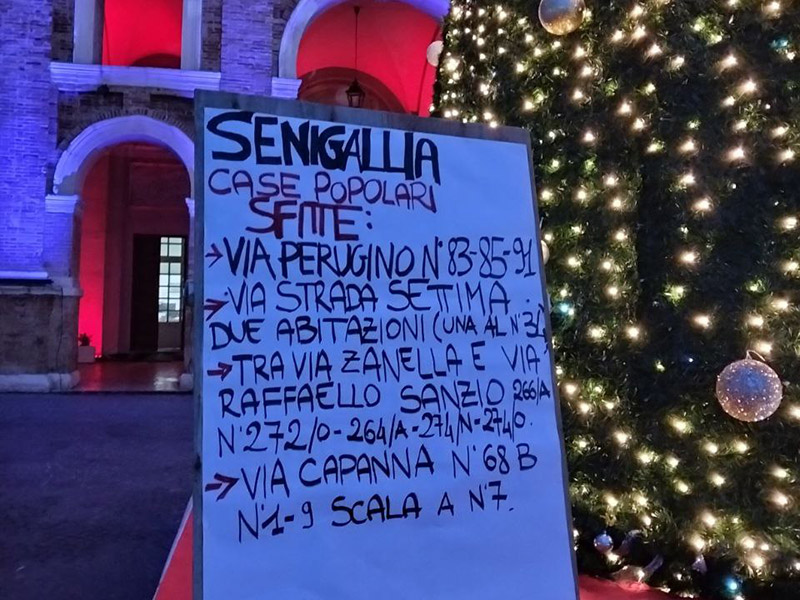 SENIGALLIA
CASE POPOLARI
SFITTE:
→VIA PERUGINO N°83-85-91
→VIA STRADA SETTIMA
DUE ABITAZIONI (UNA AL N°
→TRA VIA ZANELLA E VIA
RAFFAELLO SANZIO 266/A
N°272/0-264/A-274/N-274/0.
→VIA CAPANNA N°68 B
N°1-9 SCALA A N°7.